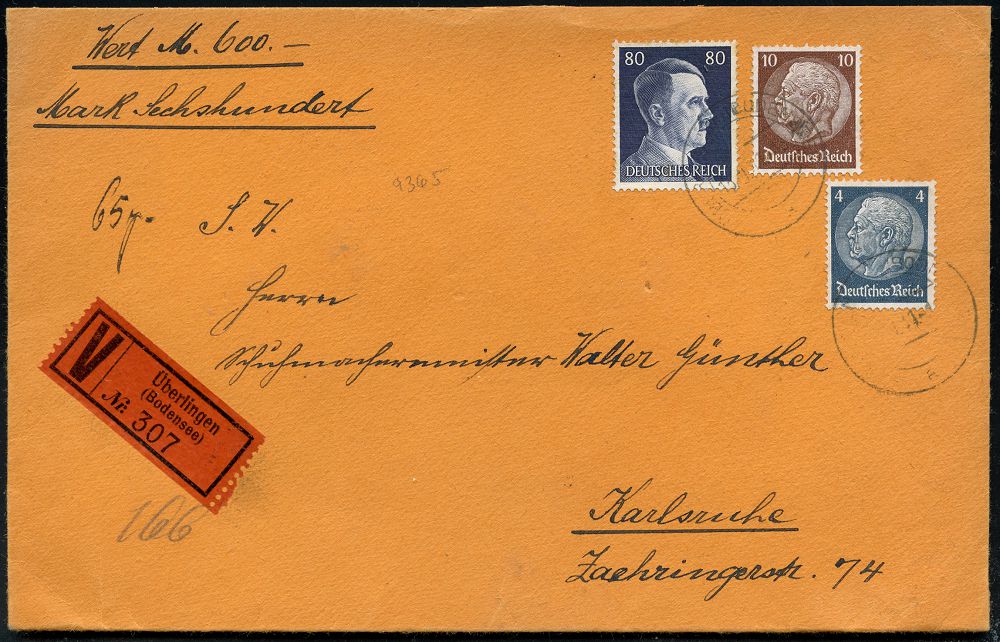 Wert M. 600.—
Mark Sechshundert
80 80
DEUTSCHES REICH
10 10
Deutsches Reich
4 4
Deutsches Reich
9365
65g. S. W.
Herrn
Schuhmachermeister Walter Günther
V
Überlingen
(Bodensee)
Nr. 307
166
Karlsruhe
Zaehringerstr. 74